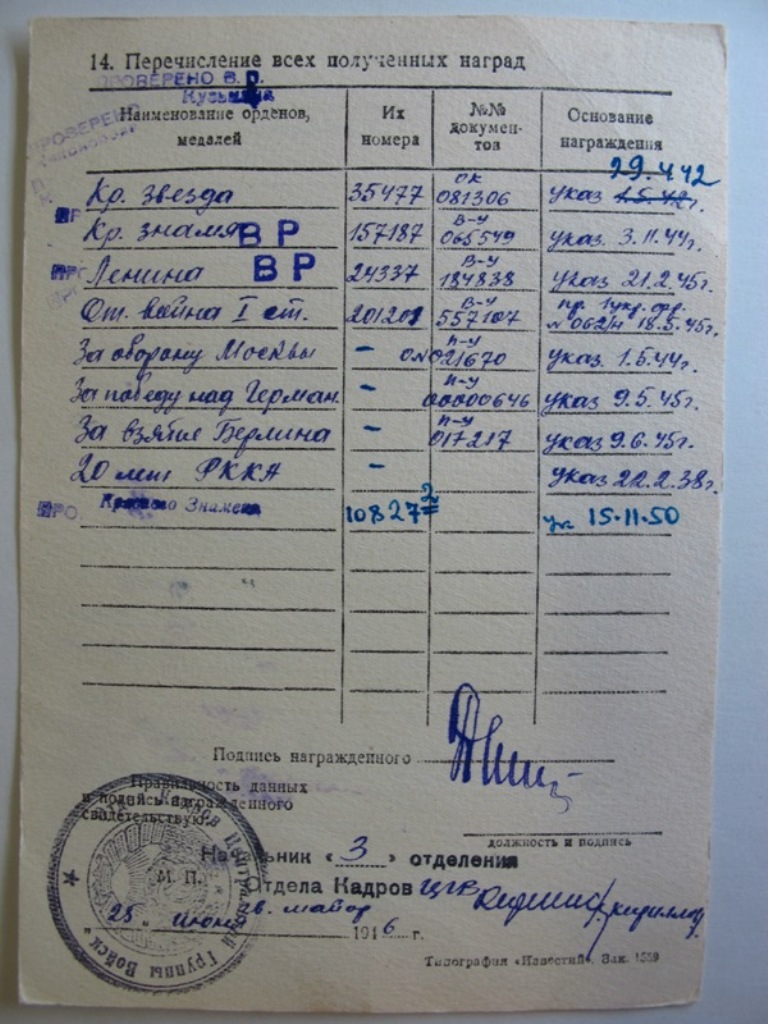 14. Перечисление всех полученных наград
ПРОВЕРЕНО В.Р.
Наименование орденов, медалей Их номера №№ документов Основание награждения
29.4.42
Кр. звезда 35477 ОК 081306 указ 1.5.42г.
Кр. знамя ВР 157187 В-У 065549 указ. 3.11.44г.
Ленина ВР 24337 В-У 184838 указ 21.2.45г.
От. война I ст. 201201 В-У 557107 пр. 1укр. фр. №062/н 18.5.45г.
За оборону Москвы - 021670 указ. 1.5.44г.
За победу над Герман. - 00000646 указ 9.5.45г.
За взятие Берлина - 017217 указ 9.6.45г.
20 лет РККА - указ 22.2.38г.
ПРО Красного Знамени 108272 ук 15.11.50
Подпись награжденного
Правильность данных
и подпись награжденного
свидетельствую:
должность и подпись
Начальник «3» отделения
М. П. Отдела Кадров ЦГВ
гв. майор
"25" июня 1946 г.
Отдел Кадров Центральной Группы Войск
Типография «Известий». Зак. 1559